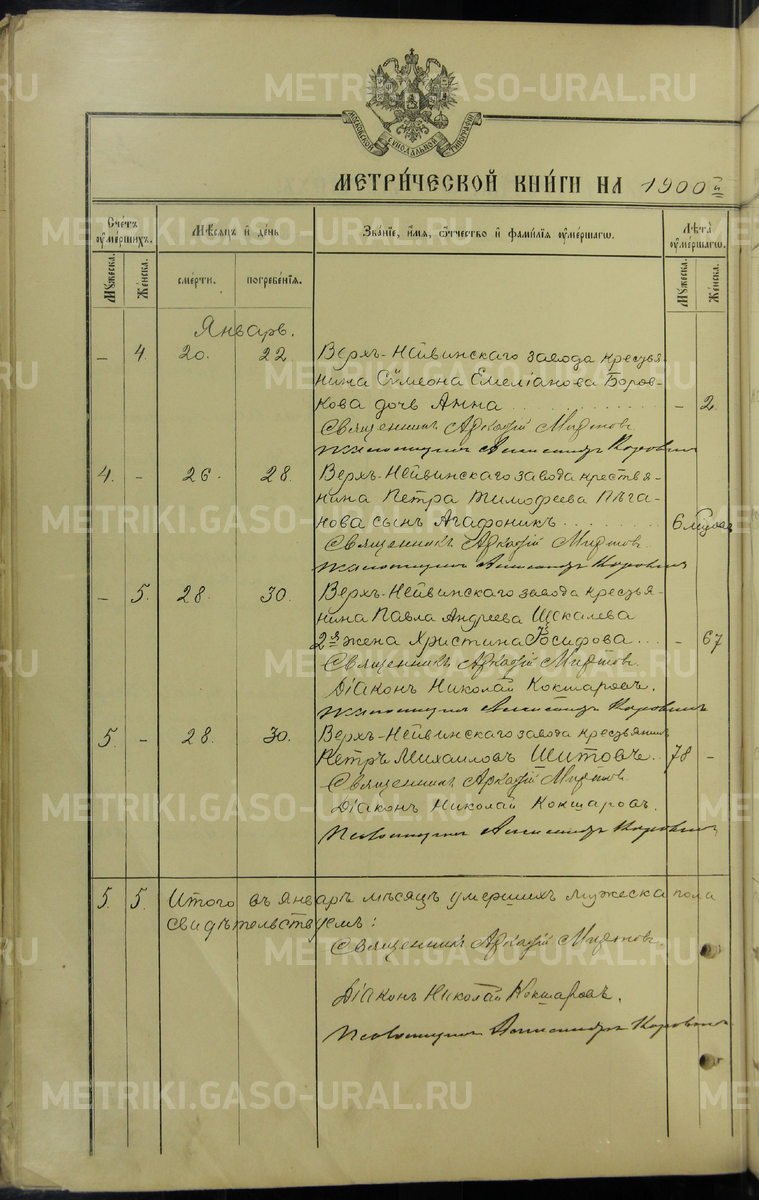 МОСКОВСКОЙ СѴНОДАЛЬНОЙ ТИПОГРАФІИ
МЕТРИ́ЧЕСКОЙ КНИ́ГИ НА 1900 й
Сче́тъ ᲂу҆ме́ршихъ.
Мѣ́сяцъ и҆ день
Зва́ніе, и҆́мя, ѻ҆́тчество и҆ фами́лія ᲂу҆ме́ршагѡ.
Лѣ́та ᲂу҆ме́ршагѡ.
Мꙋ́жеска.
Же́нска.
сме́рти.
погребе́нія.
Мꙋ́жеска.
Же́нска.
Январь.
– 4. 20. 22 Верхъ-Нейвинскаго завода кресть-
янина Сѵмеона Емеліанова Боров-
кова дочь Анна . . . – 2
Священникъ Аркадій
Псаломщикъ Александръ
4. – 26. 28. Верхъ-Нейвинскаго завода крестья-
нина Петра Тимофеева Пѣга-
нова сынъ Агафоникъ . . . 6
Священникъ Аркадій
Псаломщикъ Александръ
– 5. 28. 30. Верхъ-Нейвинскаго завода крестья-
нина Павла Андреева Щекалева
2я жена Христина Іосифова . . . – 67
Священникъ Аркадій
Діаконъ Николай Кокшаровъ.
Псаломщикъ Александръ
5. – 28. 30. Верхъ-Нейвинскаго завода крестьянинъ
Петръ Михаиловъ Шитовъ . . 78 –
Священникъ Аркадій
Діаконъ Николай Кокшаровъ.
Псаломщикъ Александръ
5. 5. Итого въ Январѣ мѣсяцѣ умершихъ мужеска пола
свидѣтельствуемъ:
Священникъ Аркадій
Діаконъ Николай Кокшаровъ.
Псаломщикъ Александръ
METRIKI.GASO-URAL.RU